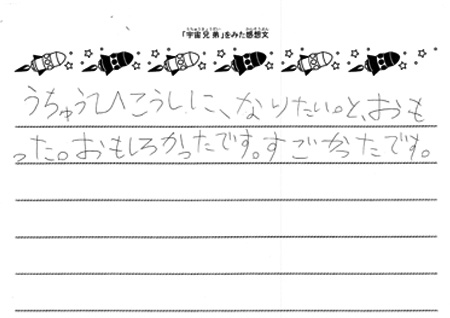 うちゅうきょうだい かんそうぶん
「宇宙兄弟」をみた感想文
うちゅうひこうしに、なりたい。と、おも
った。おもしろかったです。すごかったです。